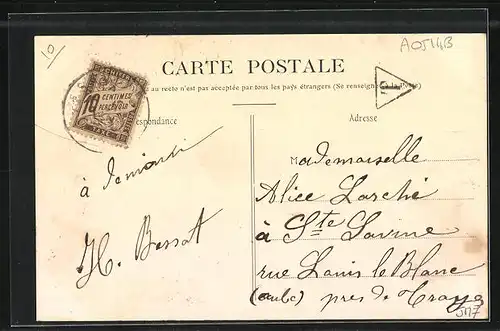 10
A0514B
CARTE POSTALE
au recto n'est pas acceptée par tous les pays étrangers (Se renseigner à la Poste)
respondance
Adresse
10 CENTIMES
À PERCEVOIR
TAXE
T
à demain
H. Bessat
Mademoiselle
Alice Larché
à Ste Savine
rue Louis le Blanc
(aube) près de Troyes
5M7